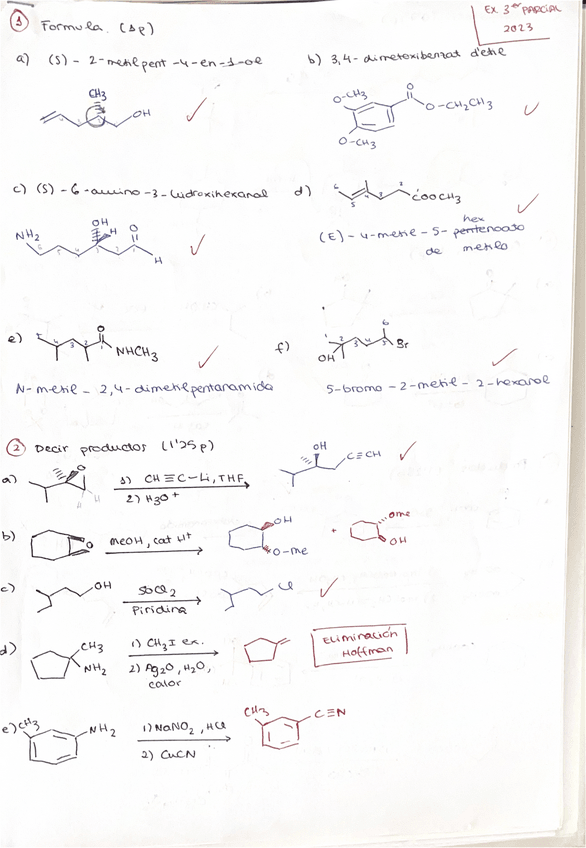 EX 3er PARCIAL
2023
① Formula. (1p)
a) (S) - 2-metilpent -4-en-1-ol
b) 3,4-dimetoxibenzat d'etil
CH3
OH
O-CH3
O
O-CH2CH3
O-CH3
c) (S)-6-amino-3-hidroxihexanal
d)
6 5 4 3 2 1
COOCH3
NH2
OH
H
O
H
hex
(E)-4-metil-5-pentenoato
de metilo
e)
O
NHCH3
f)
OH
Br
N-metil-2,4-dimetilpentanamida
5-bromo-2-metil-2-hexanol
② Decir productos (1'25p)
a)
O
H
H
1) CH≡C-Li, THF
2) H3O+
OH
C≡CH
b)
O
MeOH, cat H+
OH
O-me
+
ome
OH
c)
OH
SOCl2
Piridina
Cl
d)
CH3
NH2
1) CH3I ex.
2) Ag2O, H2O,
calor
Eliminación
Hoffman
e)
CH3
NH2
1) NaNO2, HCl
2) CuCN
CH3
C≡N